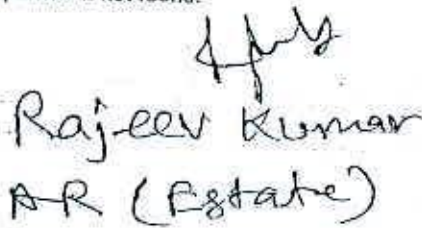 Rajeev Kumar
AR (Estate)